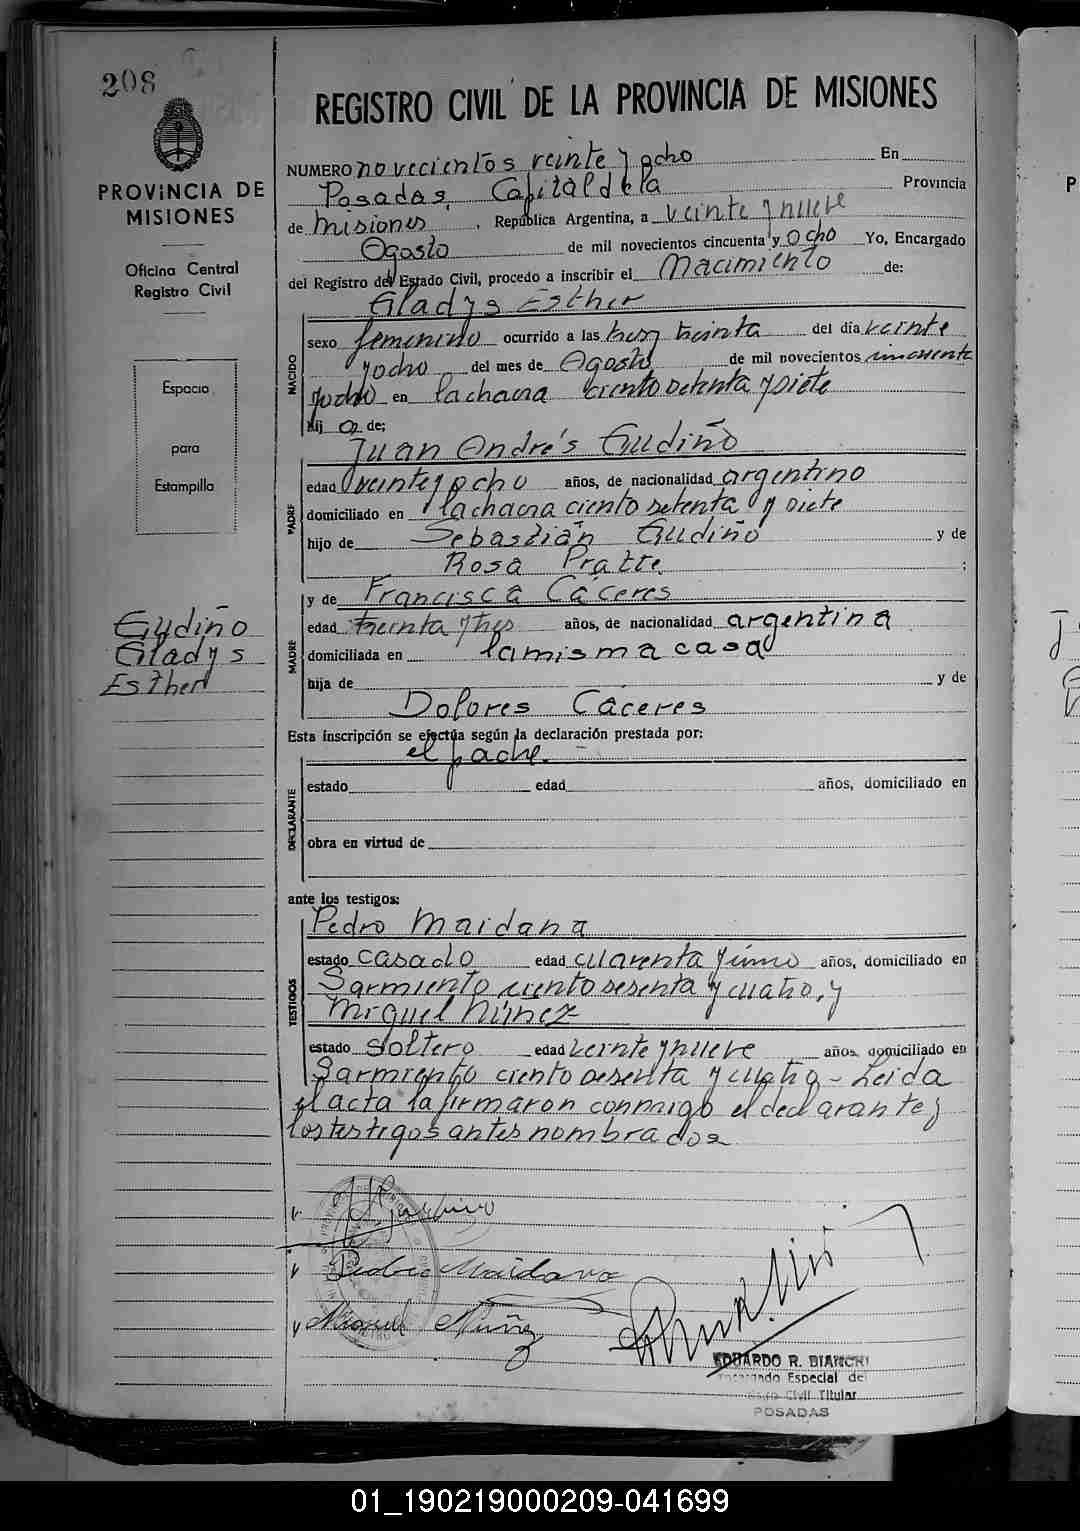 208
PROVINCIA DE
MISIONES
Oficina Central
Registro Civil
Espacio
para
Estampilla
Gudiño
Gladys
Esther
REGISTRO CIVIL DE LA PROVINCIA DE MISIONES
NUMERO novecientos veinte y ocho En
Posadas, Capital de la Provincia
de Misiones, República Argentina, a veinte y nueve
Agosto de mil novecientos cincuenta y ocho Yo, Encargado
del Registro del Estado Civil, procedo a inscribir el Nacimiento de:
Gladys Esther
NACIDO
sexo femenino ocurrido a las tres y treinta del día veinte
y ocho del mes de Agosto de mil novecientos cincuenta
y ocho en la chacra ciento setenta y siete
hij a de;
Juan Andrés Gudiño
PADRE
edad veinte y ocho años, de nacionalidad argentino
domiciliado en la chacra ciento setenta y siete
hijo de Sebastián Gudiño y de
Rosa Pratte ;
y de Francisca Cáceres
MADRE
edad treinta y tres años, de nacionalidad argentina
domiciliada en la misma casa
hija de y de
Dolores Cáceres
Esta inscripción se efectúa según la declaración prestada por:
el padre.
DECLARANTE
estado edad años, domiciliado en
obra en virtud de
ante los testigos:
Pedro Maidana
TESTIGOS
estado casado edad cuarenta y uno años, domiciliado en
Sarmiento ciento sesenta y cuatro, y
Miguel Núñez
estado soltero edad veinte y nueve años, domiciliado en
Sarmiento ciento sesenta y cuatro - Leida
el acta la firmaron conmigo el declarante y
los testigos antes nombrados
Pedro Maidana
Miguel Núñez
EDUARDO R. BIANCHI
Encargado Especial del
Civil Titular
POSADAS
01_190219000209-041699